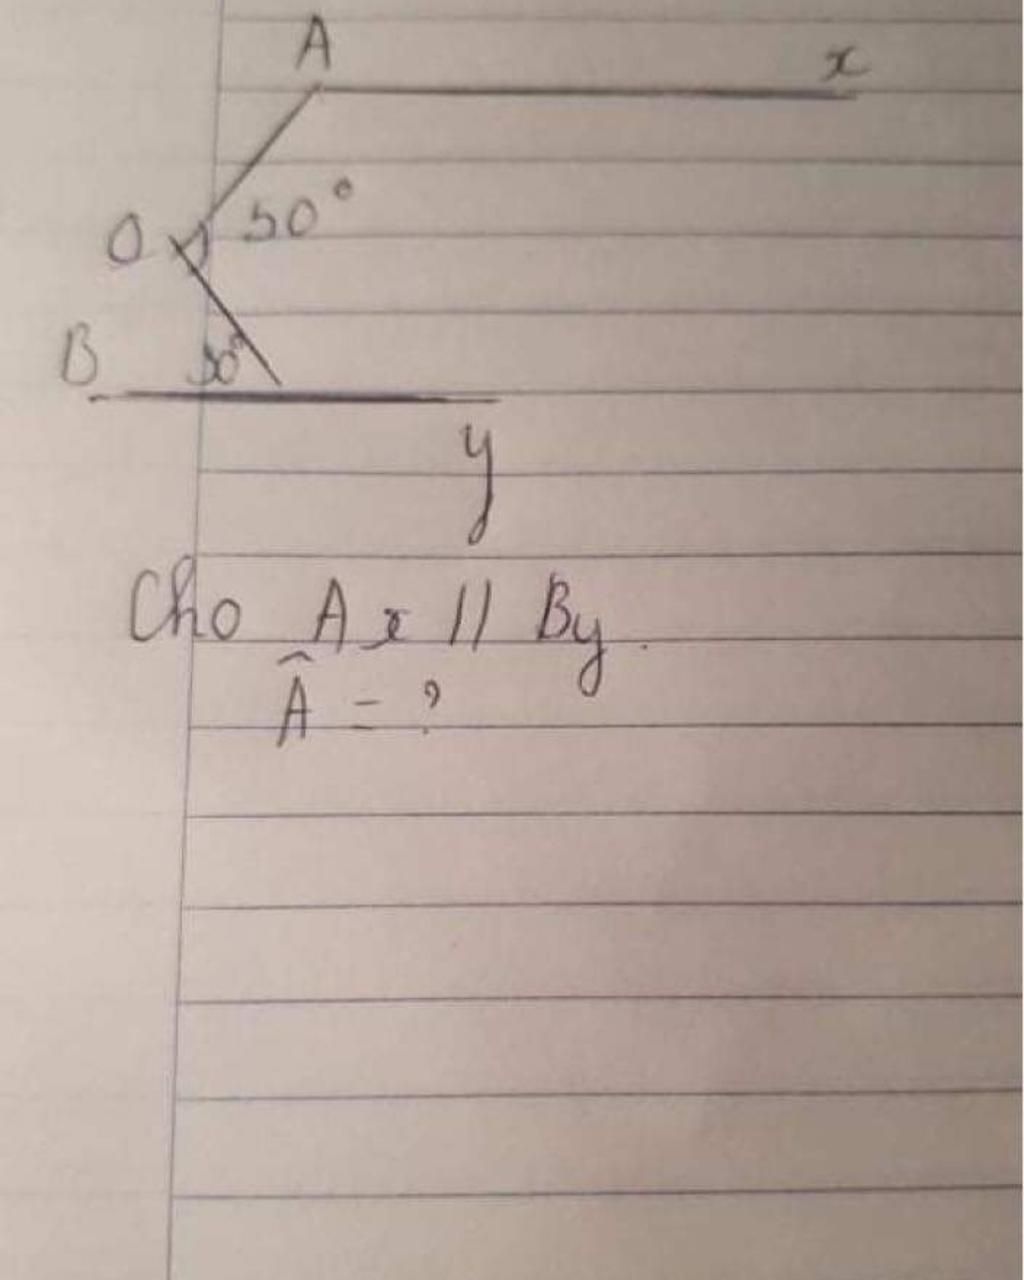 A
x
O 50°
B 30°
y
Cho Ax // By.
Â = ?